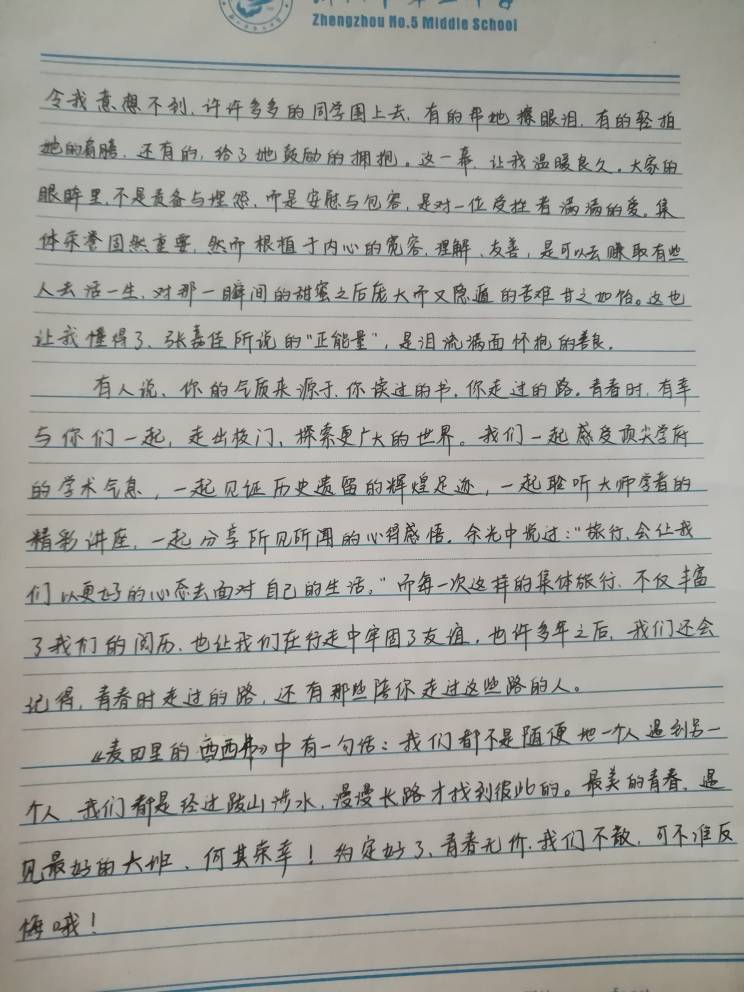 Zhengzhou No.5 Middle School
令我意想不到,许许多多的同学围上去,有的帮她擦眼泪,有的轻拍
她的肩膀,还有的,给了她鼓励的拥抱。这一幕,让我温暖良久。大家的
眼眸里,不是责备与埋怨,而是安慰与包容,是对一位受挫者满满的爱。集
体荣誉固然重要,然而根植于内心的宽容,理解、友善,是可以去赚取有些
人去活一生,对那一瞬间的甜蜜之后庞大而又隐遁的苦难甘之如饴。这也
让我懂得了、张嘉佳所说的“正能量”,是泪流满面怀抱的善良。
有人说,你的气质来源于,你读过的书,你走过的路。青春时,有幸
与你们一起,走出校门,探索更广大的世界。我们一起感受顶尖学府
的学术气息,一起见证历史遗留的辉煌足迹,一起聆听大师学者的
精彩讲座,一起分享所见所闻的心得感悟。余光中说过:“旅行,会让我
们以更好的心态去面对自己的生活。”而每一次这样的集体旅行,不仅丰富
了我们的阅历,也让我们在行走中牢固了友谊,也许多年之后,我们还会
记得,青春时走过的路,还有那些陪你走过这些路的人。
《麦田里的西弗》中有一句话:我们都不是随便地一个人遇到另一
个人,我们都是经过跋山涉水,漫漫长路才找到彼此的。最美的青春,遇
见最好的大班、何其荣幸!约定好了、青春无价,我们不散,可不准反
悔哦!